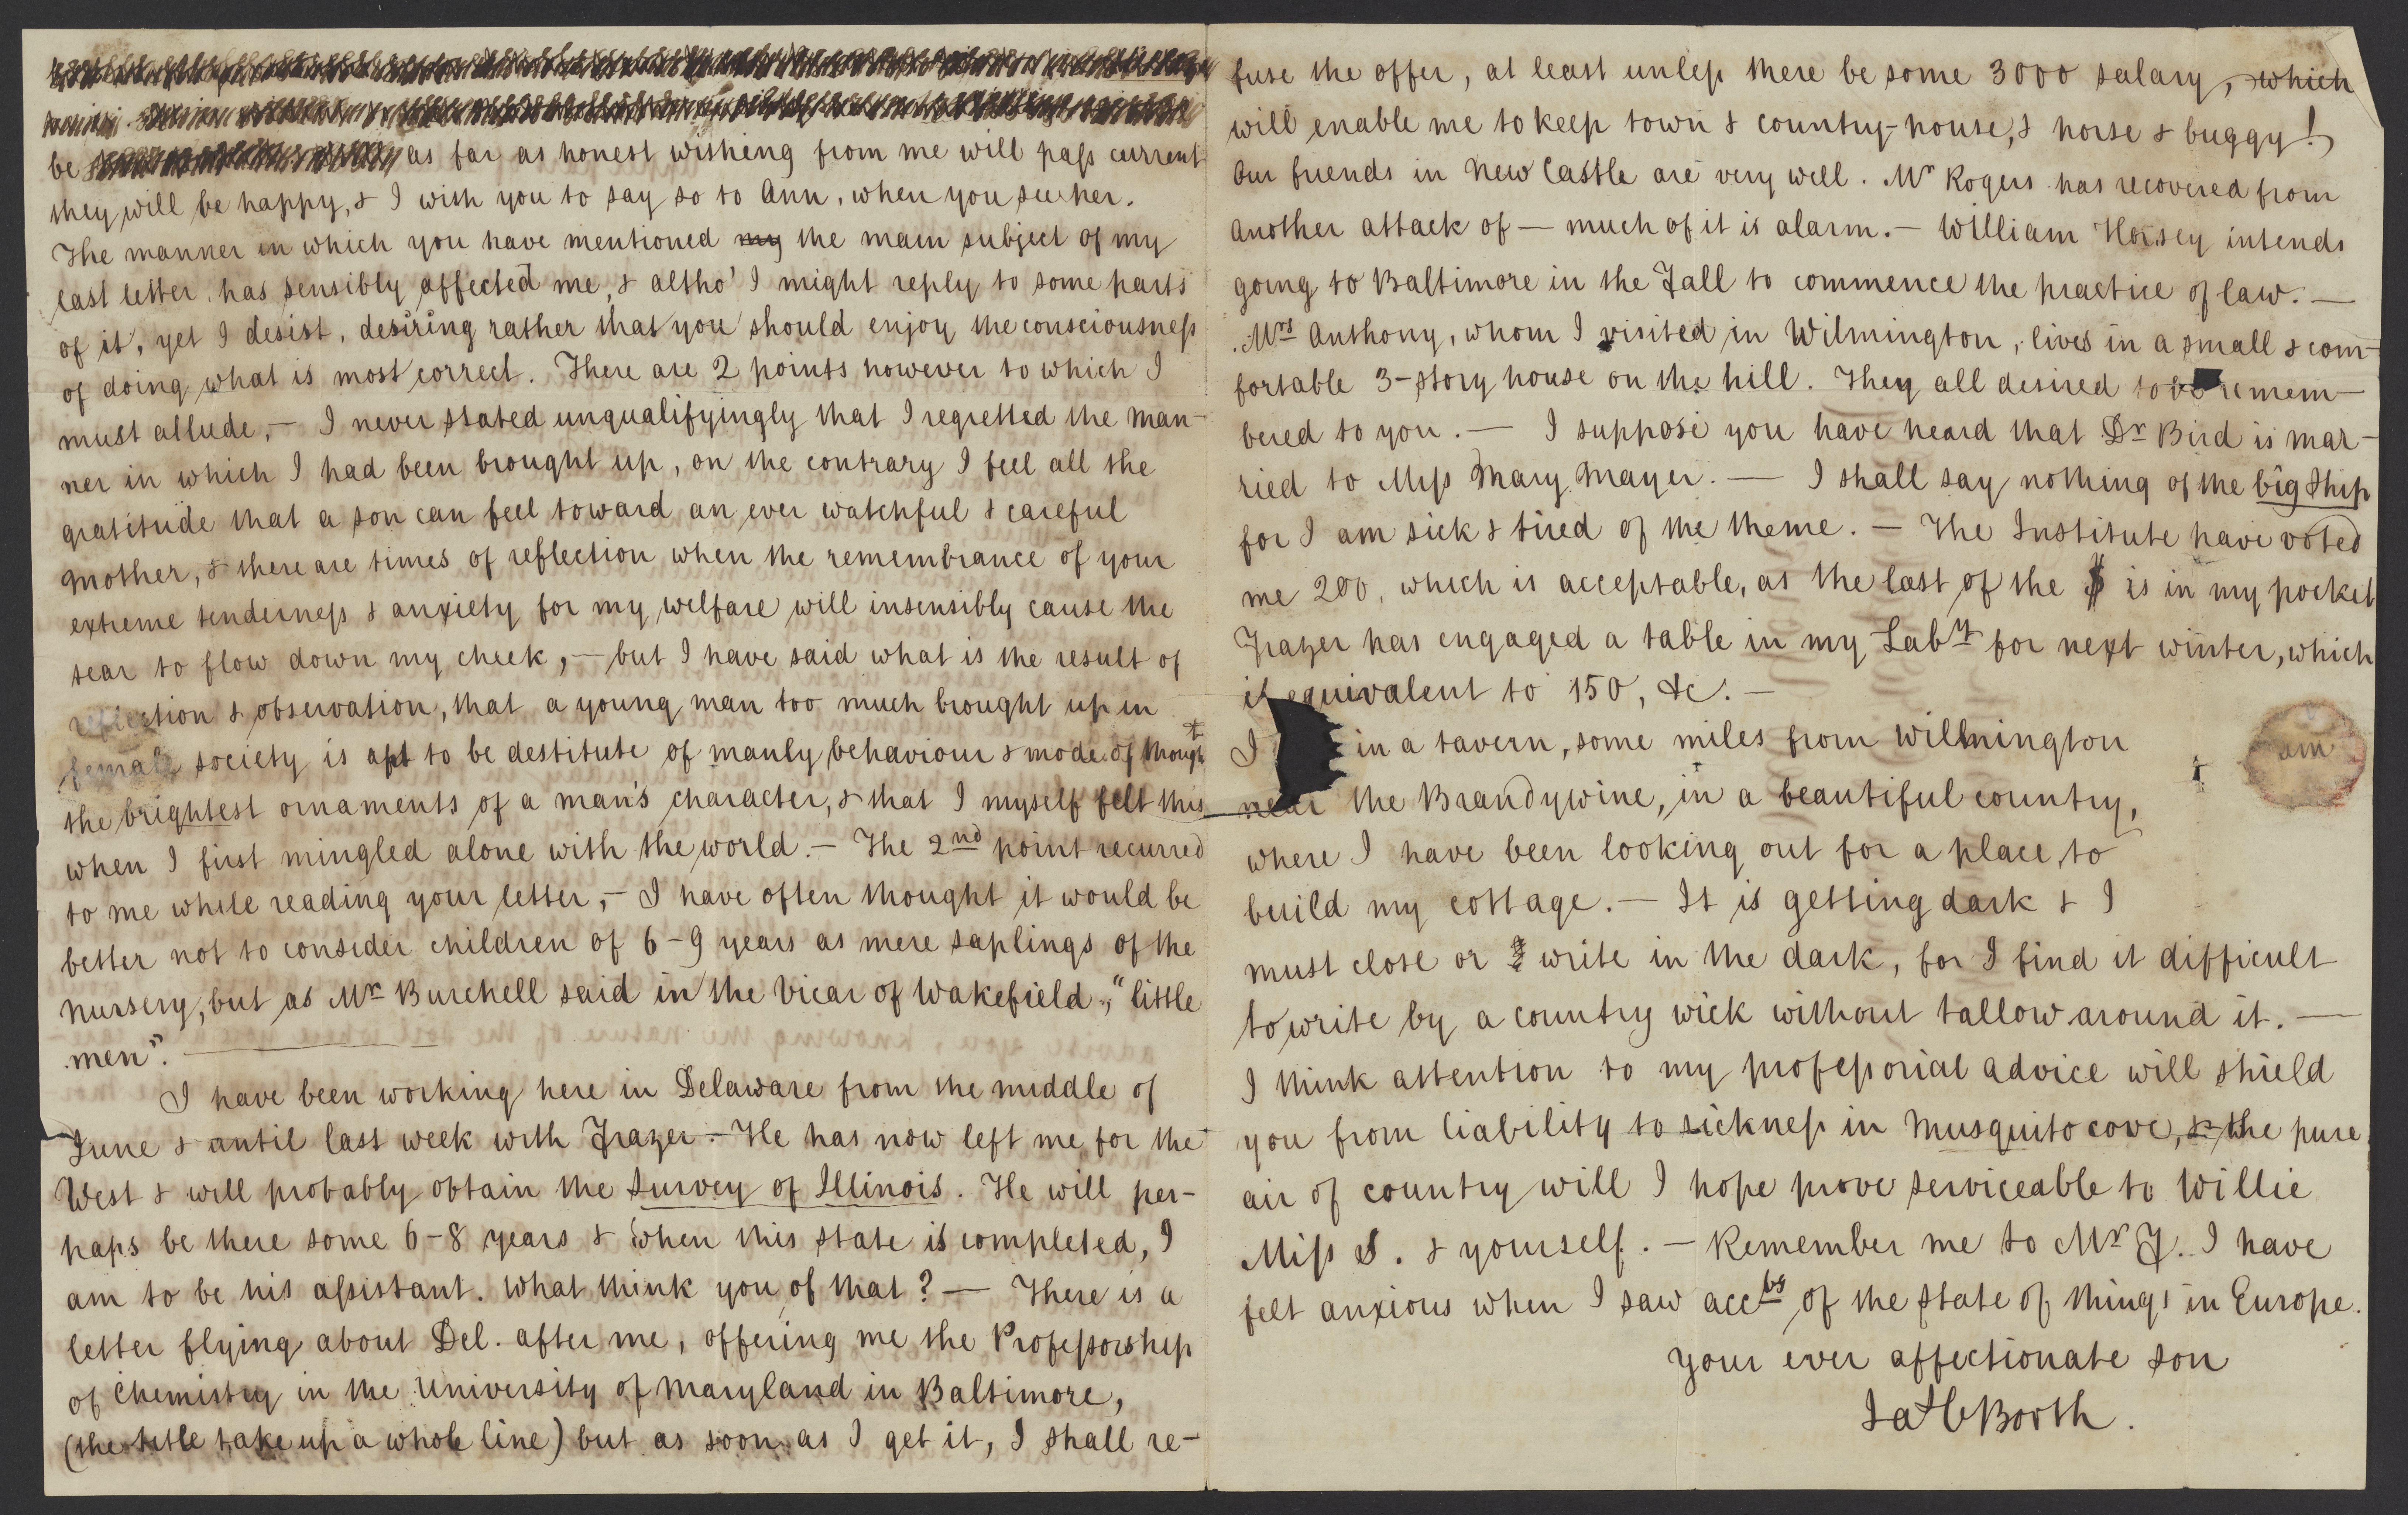 be as far as honest wishing from me will pass current
they will be happy, & I wish you to say so to Ann, when you see her.
The manner in which you have mentioned my the main subject of my
last letter, has sensibly affected me, & altho' I might reply to some parts
of it, yet I desist, desiring rather that you should enjoy the consciousness
of doing what is most correct. There are 2 points however to which I
must allude, — I never stated unqualifyingly that I regretted the man-
ner in which I had been brought up, on the contrary I feel all the
gratitude that a son can feel toward an ever watchful & careful
mother, & there are times of reflection when the remembrance of your
extreme tenderness & anxiety for my welfare will insensibly cause the
tear to flow down my cheek, — but I have said what is the result of
reflection & observation, that a young man too much brought up in
female society is apt to be destitute of manly behaviour & mode of thought
the brightest ornaments of a man's character, & that I myself felt this
when I first mingled alone with the world. — The 2nd point recurred
to me while reading your letter, — I have often thought it would be
better not to consider children of 6-9 years as mere saplings of the
nursery, but as Mr Burchell said in the Vicar of Wakefield, "little
men". —
I have been working here in Delaware from the middle of
June & until last week with Frazer. — He has now left me for the
West & will probably obtain the Survey of Illinois. He will per-
haps be there some 6-8 years & when this state is completed, I
am to be his assistant. What think you of that? — There is a
letter flying about Del. after me, offering me the Professorship
of Chemistry in the University of Maryland in Baltimore,
(the title take up a whole line) but as soon as I get it, I shall re-
fuse the offer, at least unless there be some 3000 salary, which
will enable me to keep town & country-house, & horse & buggy!
Our friends in New Castle are very well. Mr Rogers has recovered from
another attack of — much of it is alarm. — William Hersey intends
going to Baltimore in the Fall to commence the practice of law. —
Mrs Anthony, whom I visited in Wilmington, lives in a small & com-
fortable 3-story house on the hill. They all desired to be remem-
bered to you. — I suppose you have heard that Dr Bird is mar-
ried to Miss Mary Mayer. — I shall say nothing of the big ship
for I am sick & tired of the theme. — The Institute have voted
me 200, which is acceptable, as the last of the $ is in my pocket
Frazer has engaged a table in my Laby for next winter, which
is equivalent to 150, &c. —
I am in a tavern, some miles from Wilmington
near the Brandywine, in a beautiful country,
where I have been looking out for a place to
build my cottage. — It is getting dark & I
must close or write in the dark, for I find it difficult
to write by a country wick without tallow around it. —
I think attention to my professorial advice will shield
you from liability to sickness in Musquito cove, & the pure
air of country will I hope prove serviceable to Willie
Miss S. & yourself. — Remember me to Mr F. I have
felt anxious when I saw accts of the state of things in Europe.
Your ever affectionate son
Jas C Booth.